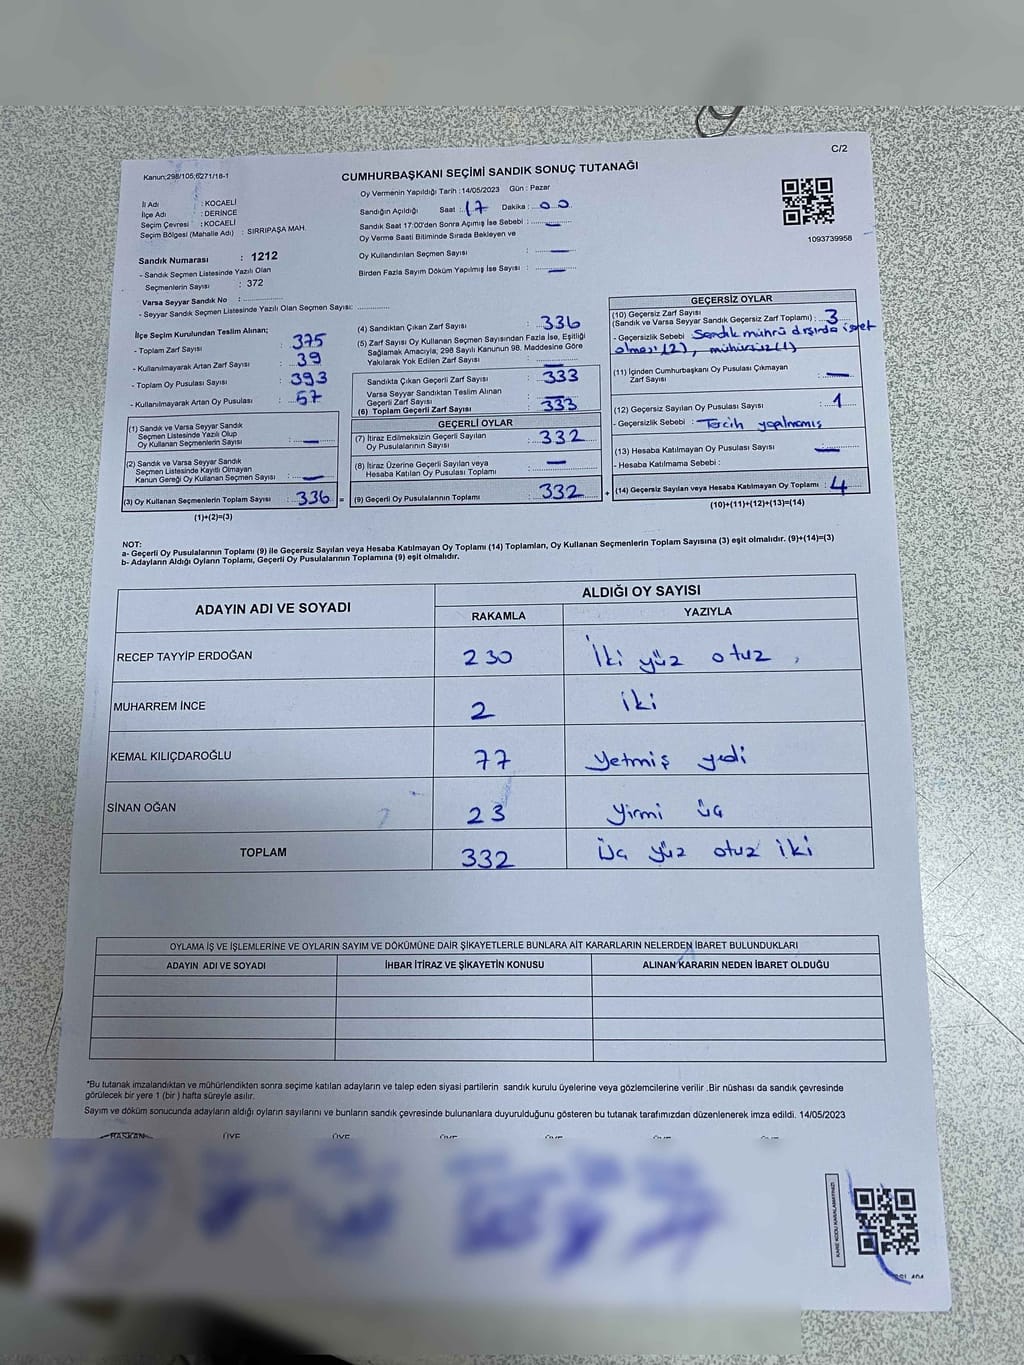 C/2
Kanun;298/105;6271/18-1
CUMHURBAŞKANI SEÇİMİ SANDIK SONUÇ TUTANAĞI
İl Adı : KOCAELİ
İlçe Adı : DERİNCE
Seçim Çevresi : KOCAELİ
Seçim Bölgesi (Mahalle Adı) : SIRRIPAŞA MAH.
Sandık Numarası : 1212
- Sandık Seçmen Listesinde Yazılı Olan
Seçmenlerin Sayısı : 372
Varsa Seyyar Sandık No :
- Seyyar Sandık Seçmen Listesinde Yazılı Olan Seçmen Sayısı:
Oy Vermenin Yapıldığı Tarih :14/05/2023 Gün : Pazar
Sandığın Açıldığı Saat : 17 Dakika : 00
Sandık Saat 17:00'den Sonra Açımış İse Sebebi : —
Oy Verme Saati Bitiminde Sırada Bekleyen ve
Oy Kullandırılan Seçmen Sayısı : —
Birden Fazla Sayım Döküm Yapılmış İse Sayısı : —
1093739958
İlçe Seçim Kurulundan Teslim Alınan;
- Toplam Zarf Sayısı : 375
- Kullanılmayarak Artan Zarf Sayısı : 39
- Toplam Oy Pusulası Sayısı : 393
- Kullanılmayarak Artan Oy Pusulası : 57
(1) Sandık ve Varsa Seyyar Sandık
Seçmen Listesinde Yazılı Olup
Oy Kullanan Seçmenlerin Sayısı : —
(2) Sandık ve Varsa Seyyar Sandık
Seçmen Listesinde Kayıtlı Olmayan
Kanun Gereği Oy Kullanan Seçmen Sayısı : —
(3) Oy Kullanan Seçmenlerin Toplam Sayısı : 336 =
(1)+(2)=(3)
(4) Sandıktan Çıkan Zarf Sayısı : 336
(5) Zarf Sayısı Oy Kullanan Seçmen Sayısından Fazla İse, Eşitliği
Sağlamak Amacıyla, 298 Sayılı Kanunun 98. Maddesine Göre
Yakılarak Yok Edilen Zarf Sayısı : —
Sandıkta Çıkan Geçerli Zarf Sayısı : 333
Varsa Seyyar Sandıktan Teslim Alınan
Geçerli Zarf Sayısı : —
(6) Toplam Geçerli Zarf Sayısı : 333
GEÇERLİ OYLAR
(7) İtiraz Edilmeksizin Geçerli Sayılan
Oy Pusulalarının Sayısı : 332
(8) İtiraz Üzerine Geçerli Sayılan veya
Hesaba Katılan Oy Pusulası Toplamı : —
(9) Geçerli Oy Pusulalarının Toplamı : 332 +
GEÇERSİZ OYLAR
(10) Geçersiz Zarf Sayısı
(Sandık ve Varsa Seyyar Sandık Geçersiz Zarf Toplamı) : 3
- Geçersizlik Sebebi Sandık mührü dışında işaret
olması (2), mühürsüz (1)
(11) İçinden Cumhurbaşkanı Oy Pusulası Çıkmayan
Zarf Sayısı : —
(12) Geçersiz Sayılan Oy Pusulası Sayısı : 1
- Geçersizlik Sebebi : Tercih yapılmamış
(13) Hesaba Katılmayan Oy Pusulası Sayısı : —
- Hesaba Katılmama Sebebi :
(14) Geçersiz Sayılan veya Hesaba Katılmayan Oy Toplamı : 4
(10)+(11)+(12)+(13)=(14)
NOT:
a- Geçerli Oy Pusulalarının Toplamı (9) ile Geçersiz Sayılan veya Hesaba Katılmayan Oy Toplamı (14) Toplamları, Oy Kullanan Seçmenlerin Toplam Sayısına (3) eşit olmalıdır. (9)+(14)=(3)
b- Adayların Aldığı Oyların Toplamı, Geçerli Oy Pusulalarının Toplamına (9) eşit olmalıdır.
ADAYIN ADI VE SOYADI ALDIĞI OY SAYISI
RAKAMLA YAZIYLA
RECEP TAYYİP ERDOĞAN 230 İki yüz otuz
MUHARREM İNCE 2 iki
KEMAL KILIÇDAROĞLU 77 yetmiş yedi
SİNAN OĞAN 23 yirmi üç
TOPLAM 332 üç yüz otuz iki
OYLAMA İŞ VE İŞLEMLERİNE VE OYLARIN SAYIM VE DÖKÜMÜNE DAİR ŞİKAYETLERLE BUNLARA AİT KARARLARIN NELERDEN İBARET BULUNDUKLARI
ADAYIN ADI VE SOYADI İHBAR İTİRAZ VE ŞİKAYETİN KONUSU ALINAN KARARIN NEDEN İBARET OLDUĞU
*Bu tutanak imzalandıktan ve mühürlendikten sonra seçime katılan adayların ve talep eden siyasi partilerin sandık kurulu üyelerine veya gözlemcilerine verilir .Bir nüshası da sandık çevresinde
görülecek bir yere 1 (bir ) hafta süreyle asılır.
Sayım ve döküm sonucunda adayların aldığı oyların sayılarını ve bunların sandık çevresinde bulunanlara duyurulduğunu gösteren bu tutanak tarafımızdan düzenlenerek imza edildi. 14/05/2023
BAŞKAN ÜYE ÜYE ÜYE ÜYE ÜYE ÜYE
KARE KODU KARALAMAYINIZ!